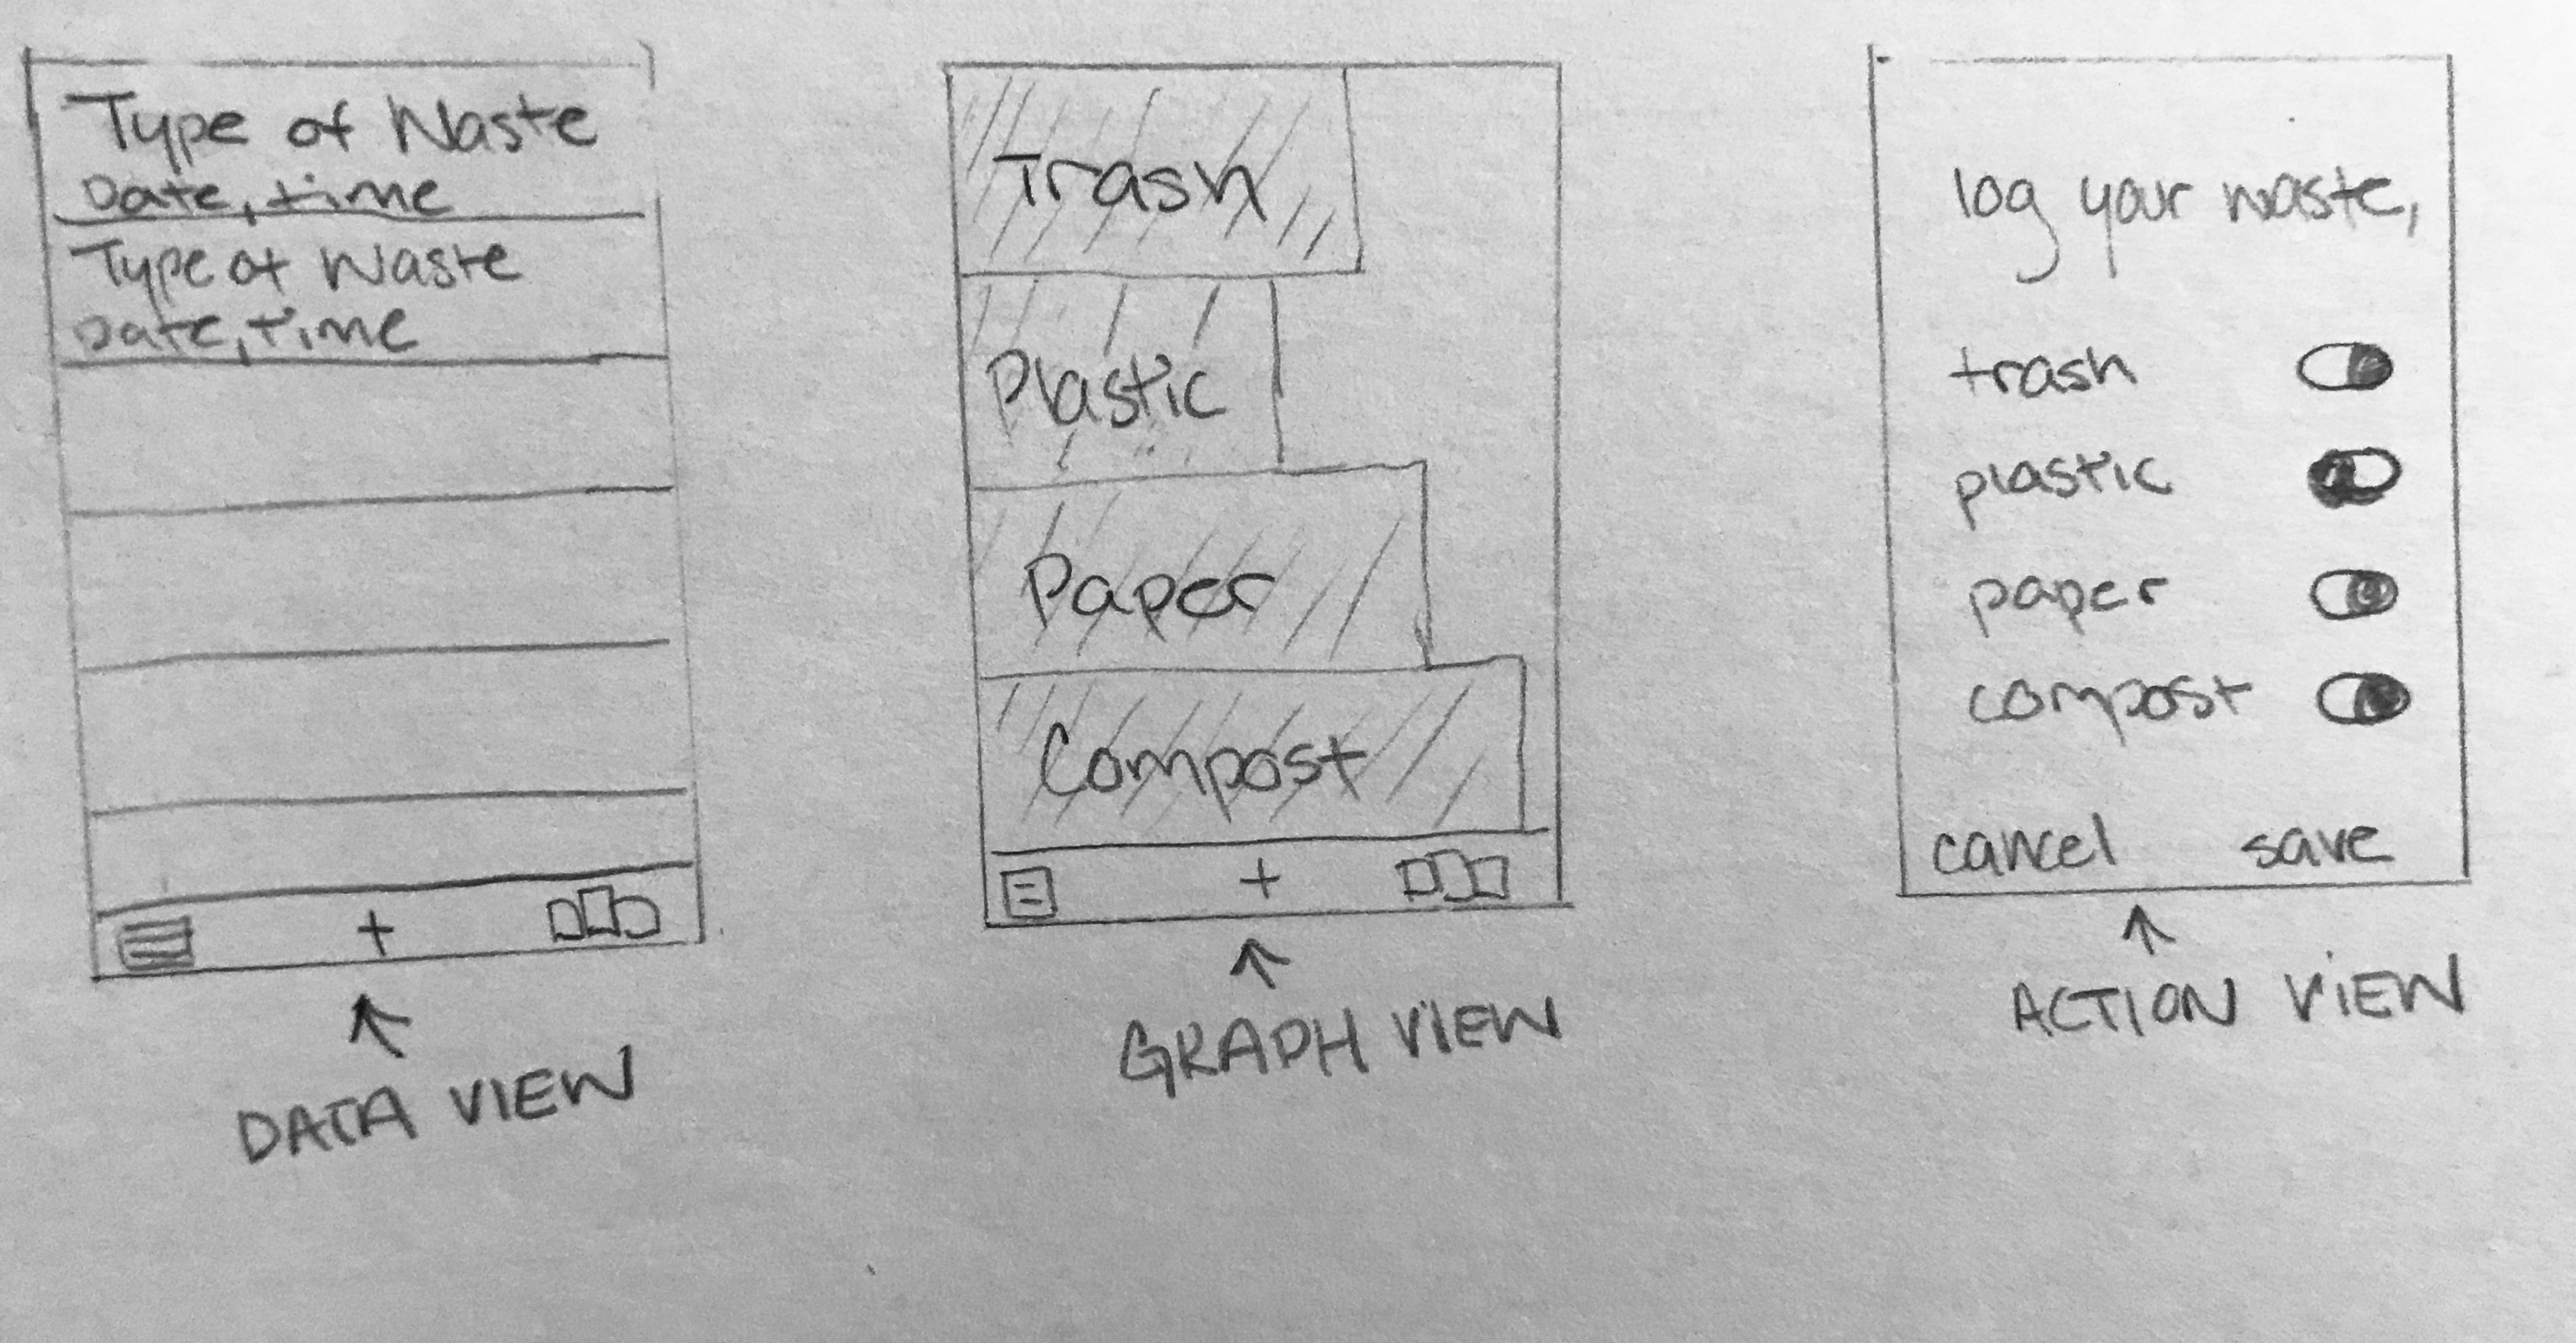 Type of Waste
Date, time
Type of Waste
Date, time
+
DATA VIEW
Trash
Plastic
Paper
Compost
+
GRAPH VIEW
log your waste,
trash
plastic
paper
compost
cancel save
ACTION VIEW